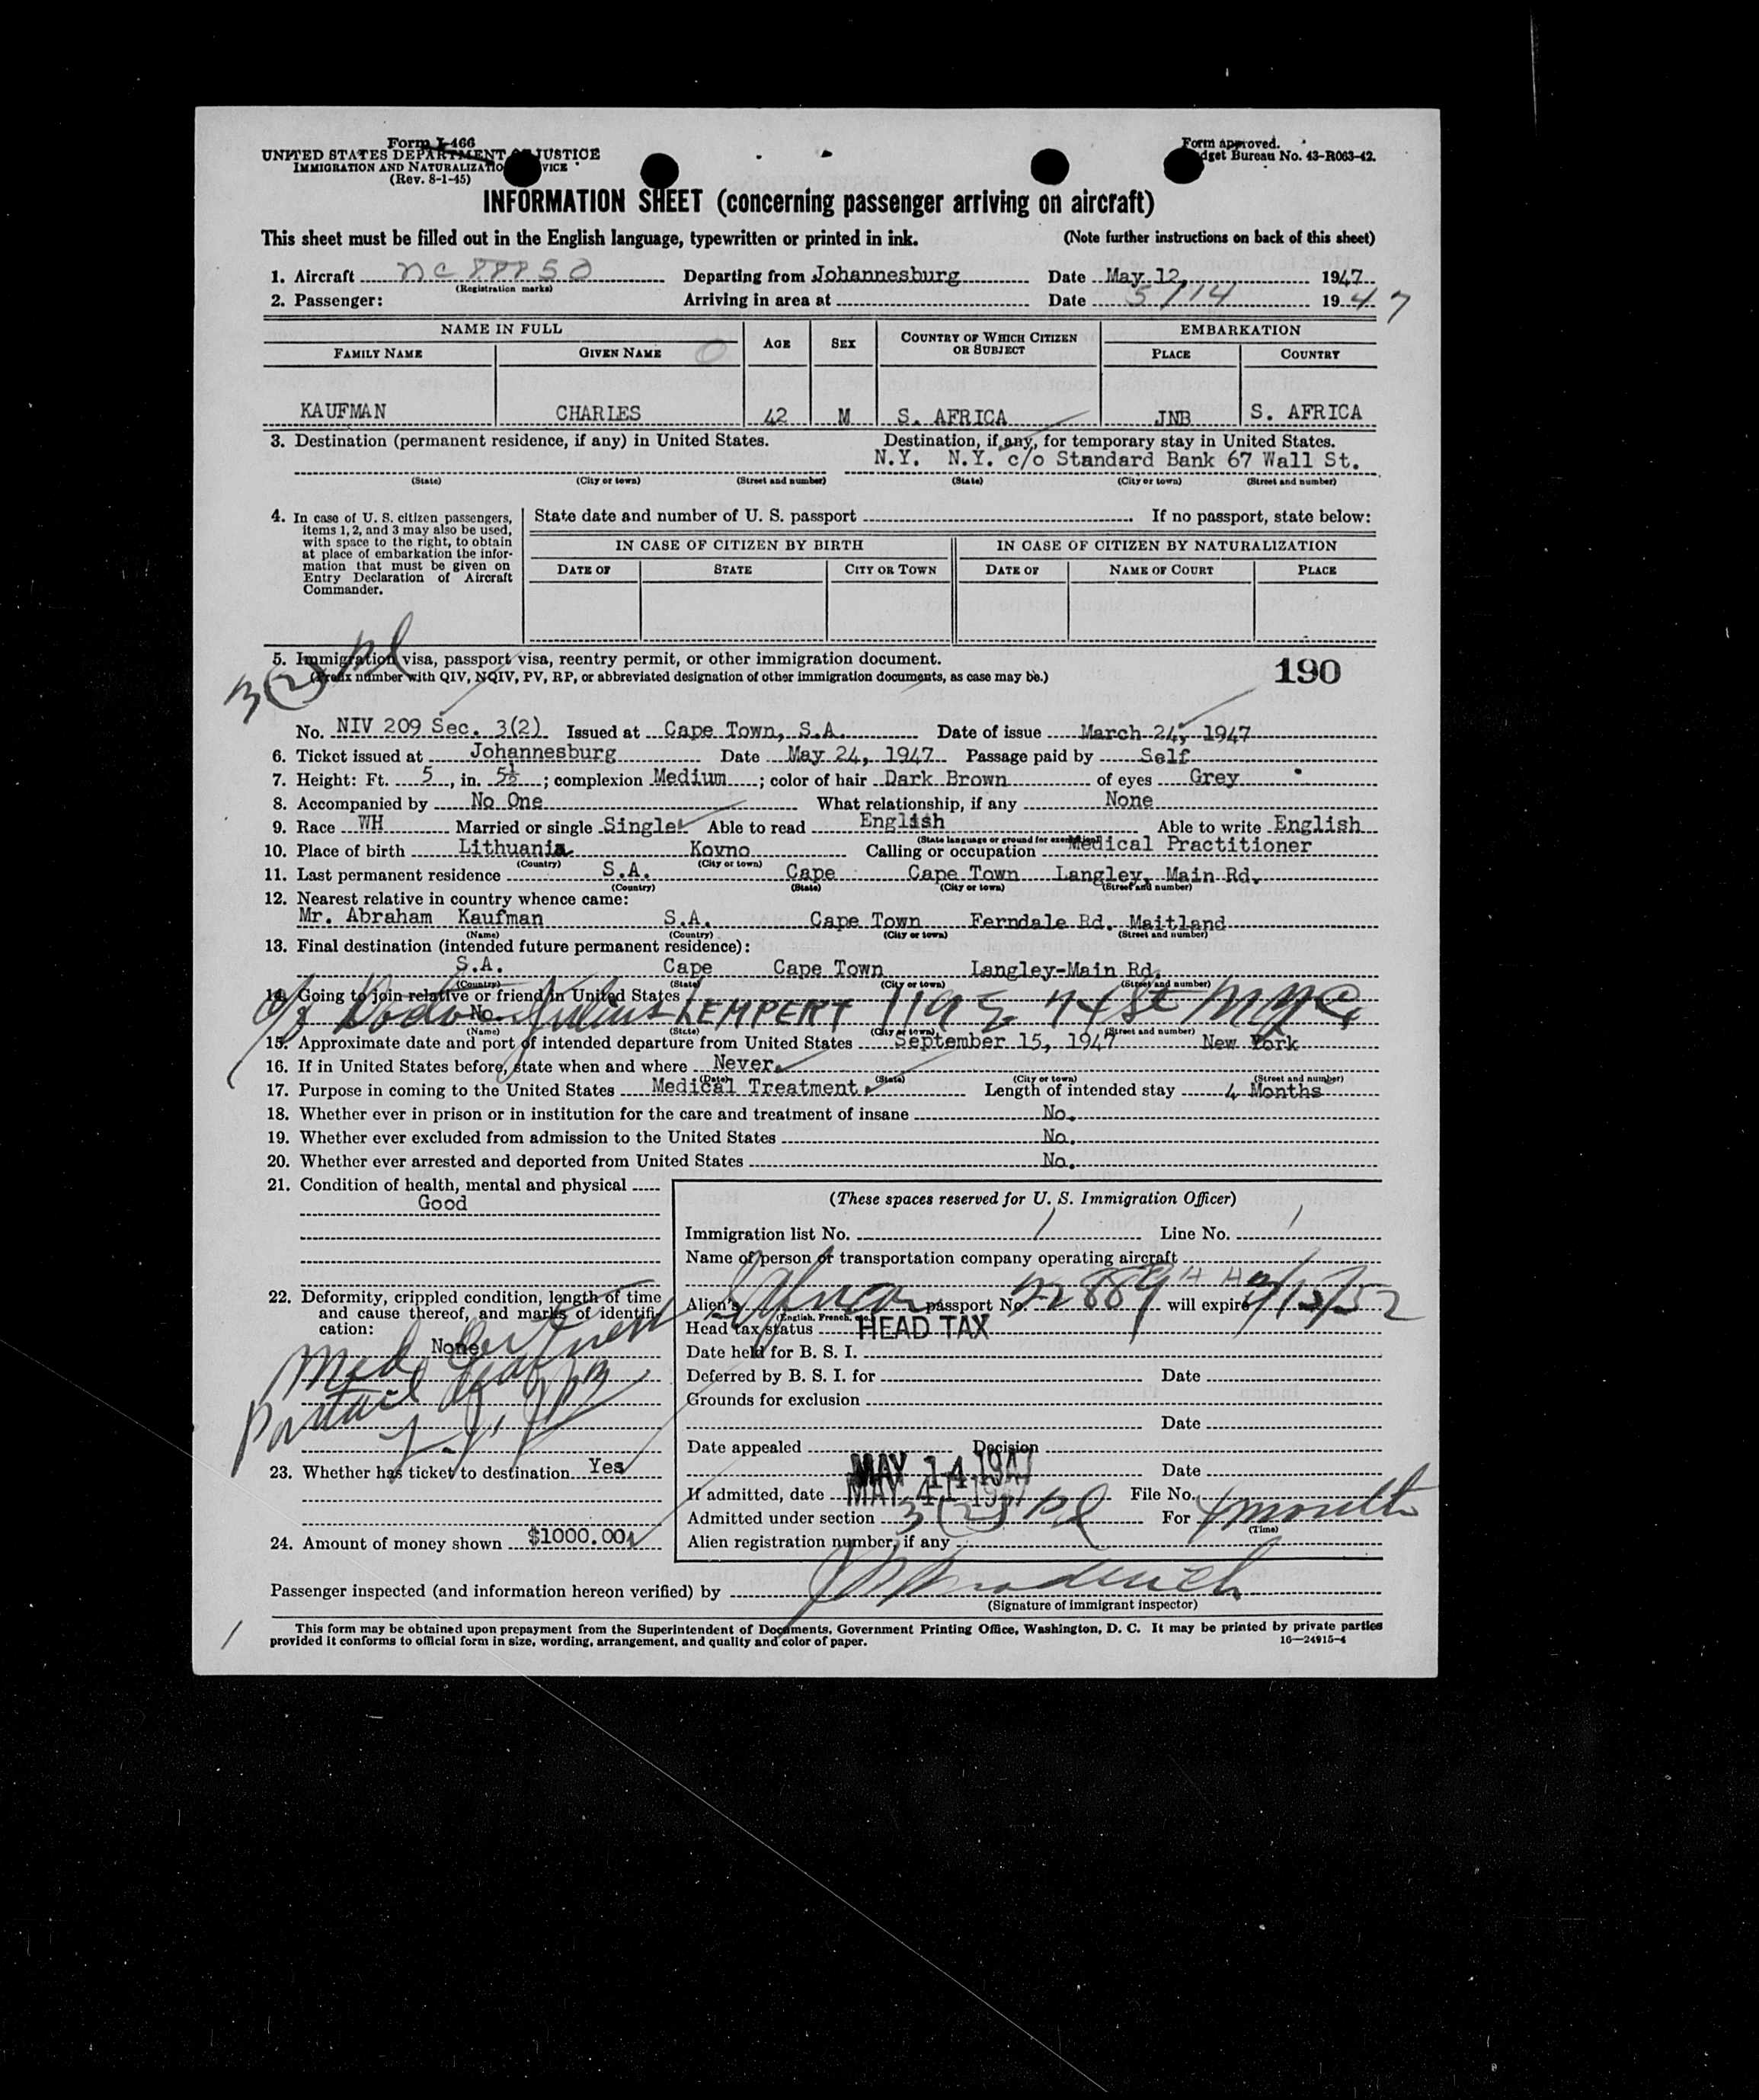 Form I-466
UNITED STATES DEPARTMENT OF JUSTICE
IMMIGRATION AND NATURALIZATION SERVICE
(Rev. 8-1-45)
Form approved.
Budget Bureau No. 43-R063-42.
INFORMATION SHEET (concerning passenger arriving on aircraft)
This sheet must be filled out in the English language, typewritten or printed in ink. (Note further instructions on back of this sheet)
1. Aircraft nc 88850 Departing from Johannesburg Date May 12, 1947
(Registration marks)
2. Passenger: Arriving in area at Date 5/14 1947
NAME IN FULL AGE SEX COUNTRY OF WHICH CITIZEN OR SUBJECT EMBARKATION
FAMILY NAME GIVEN NAME PLACE COUNTRY
KAUFMAN CHARLES 42 M S. AFRICA JNB S. AFRICA
3. Destination (permanent residence, if any) in United States. Destination, if any, for temporary stay in United States.
N.Y. N.Y. c/o Standard Bank 67 Wall St.
(State) (City or town) (Street and number) (State) (City or town) (Street and number)
4. In case of U. S. citizen passengers, items 1, 2, and 3 may also be used, with space to the right, to obtain at place of embarkation the information that must be given on Entry Declaration of Aircraft Commander.
State date and number of U. S. passport If no passport, state below:
IN CASE OF CITIZEN BY BIRTH IN CASE OF CITIZEN BY NATURALIZATION
DATE OF STATE CITY OR TOWN DATE OF NAME OF COURT PLACE
3(2)
5. Immigration visa, passport visa, reentry permit, or other immigration document.
(Prefix number with QIV, NQIV, PV, RP, or abbreviated designation of other immigration documents, as case may be.)
190
No. NIV 209 Sec. 3(2) Issued at Cape Town, S.A. Date of issue March 24, 1947
6. Ticket issued at Johannesburg Date May 24, 1947 Passage paid by Self
7. Height: Ft. 5, in. 5½; complexion Medium; color of hair Dark Brown of eyes Grey
8. Accompanied by No One What relationship, if any None
9. Race WH Married or single Single Able to read English Able to write English
(State language or ground for exemption)
10. Place of birth Lithuania Kovno Calling or occupation Medical Practitioner
(Country) (City or town)
11. Last permanent residence S.A. Cape Cape Town Langley, Main Rd.
(Country) (State) (City or town) (Street and number)
12. Nearest relative in country whence came:
Mr. Abraham Kaufman S.A. Cape Town Ferndale Rd. Maitland
(Name) (Country) (City or town) (Street and number)
13. Final destination (intended future permanent residence):
S.A. Cape Cape Town Langley-Main Rd.
(Country) (State) (City or town) (Street and number)
14. Going to join relative or friend in United States
No. Julius LEMPERT 119 E 74 St NYC
(Name) (State) (City or town) (Street and number)
15. Approximate date and port of intended departure from United States September 15, 1947 New York
16. If in United States before, state when and where Never.
(Date) (State) (City or town) (Street and number)
17. Purpose in coming to the United States Medical Treatment. Length of intended stay 4 Months
18. Whether ever in prison or in institution for the care and treatment of insane No.
19. Whether ever excluded from admission to the United States No.
20. Whether ever arrested and deported from United States No.
21. Condition of health, mental and physical
Good
22. Deformity, crippled condition, length of time and cause thereof, and marks of identification:
None
Med
23. Whether has ticket to destination Yes
24. Amount of money shown $1000.00
(These spaces reserved for U. S. Immigration Officer)
Immigration list No. 1 Line No. 1
Name of person or transportation company operating aircraft
Alien's passport No. 22889 will expire
(English, French, etc.)
Head tax status HEAD TAX
Date held for B. S. I.
Deferred by B. S. I. for Date
Grounds for exclusion
Date
Date appealed Decision
MAY 14 1947 Date
If admitted, date File No.
Admitted under section 3(2) For 4 months
(Time)
Alien registration number, if any
Passenger inspected (and information hereon verified) by
(Signature of immigrant inspector)
This form may be obtained upon prepayment from the Superintendent of Documents, Government Printing Office, Washington, D. C. It may be printed by private parties
provided it conforms to official form in size, wording, arrangement, and quality and color of paper. 16—24915-4